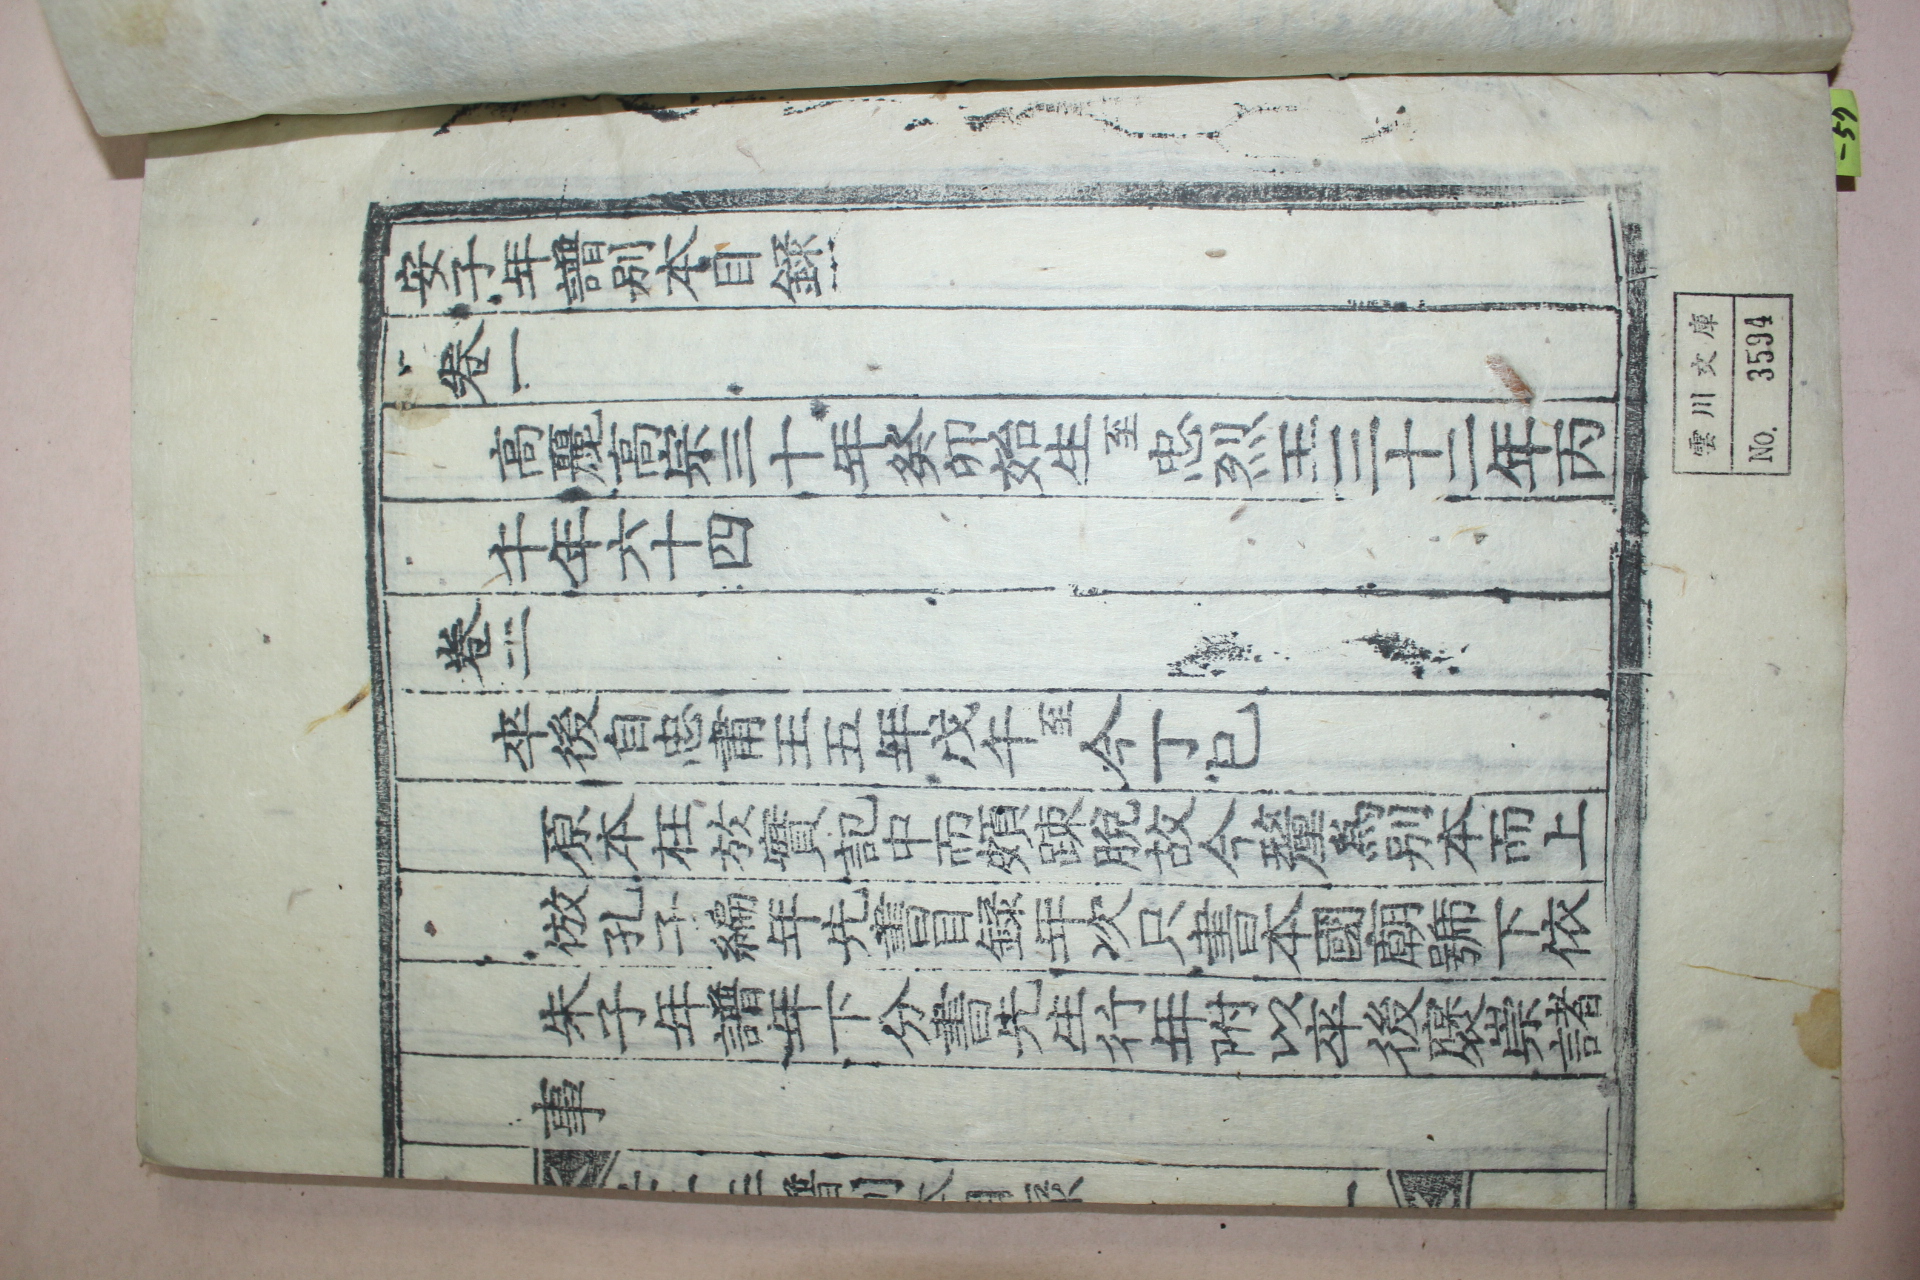 安子年譜別本目錄
卷一
高麗高宗三十年癸卯始生至忠烈王三十二年丙
午年六十四
卷二
卒後自忠肅王五年戊午至今丁巳
原本在於實記中而煩踈脫故今釐爲別本而上
倣孔子編年先書目錄年次只書本國廟號下依
朱子年譜年下分書先生行年附以卒後褒崇諸
事
年譜別本目录
雲川文庫
No. 3594
-57